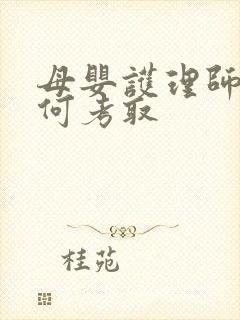 母嬰護理師
何考取
桂苑